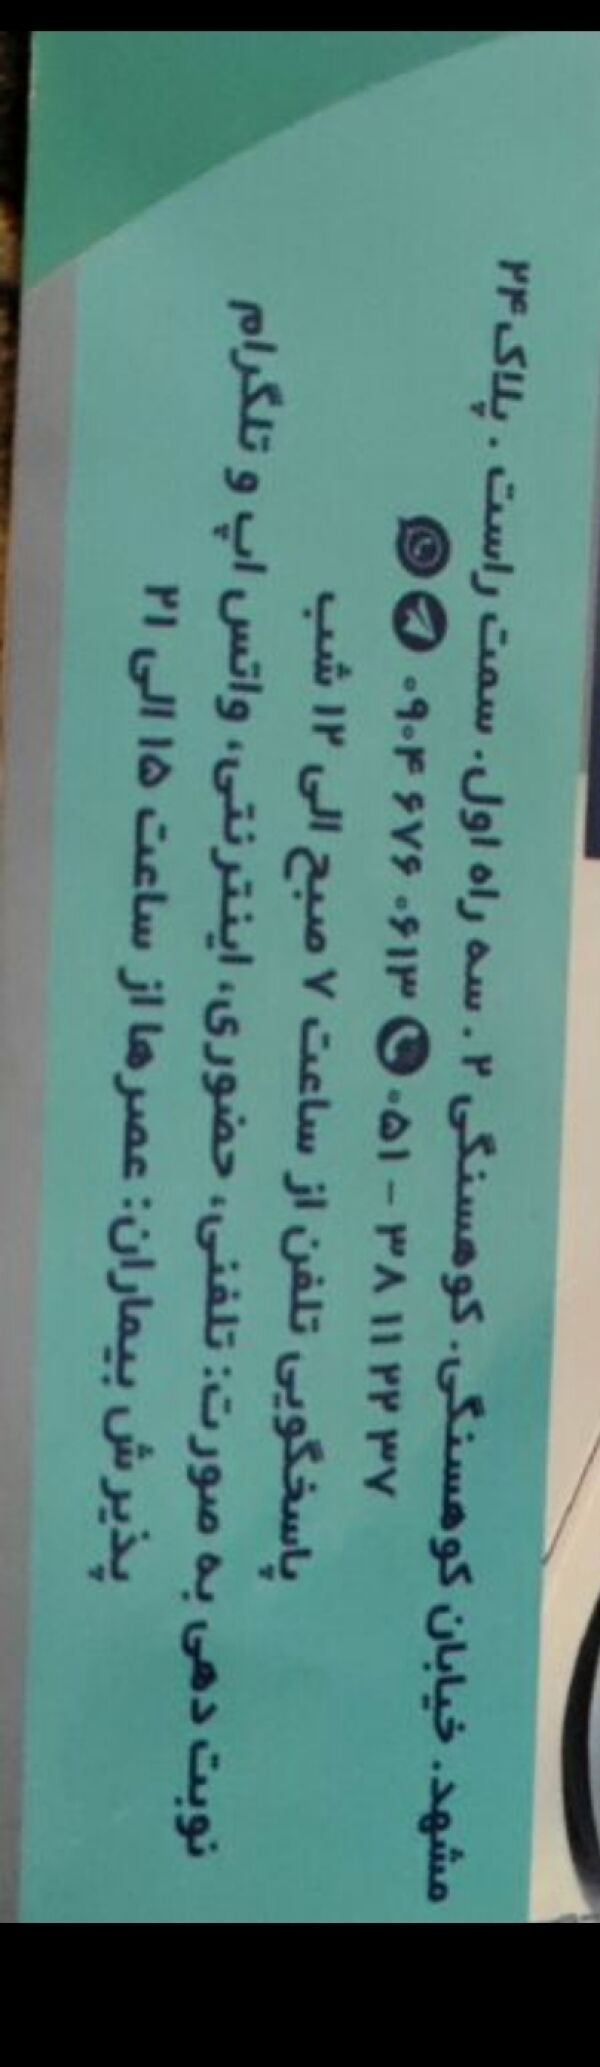 مشهد. خیابان کوهسنگی. کوهسنگی ۲ . سه راه اول. سمت راست . پلاک ۲۴
۰۵۱ - ۳۸ ۱۱ ۲۲ ۳۷ ۰۹۰۴ ۶۷۶ ۰۶۱۳
پاسخگویی تلفن از ساعت ۷ صبح الی ۱۲ شب
نوبت دهی به صورت: تلفنی، حضوری، اینترنتی، واتس اپ و تلگرام
پذیرش بیماران: عصرها از ساعت ۱۵ الی ۲۱